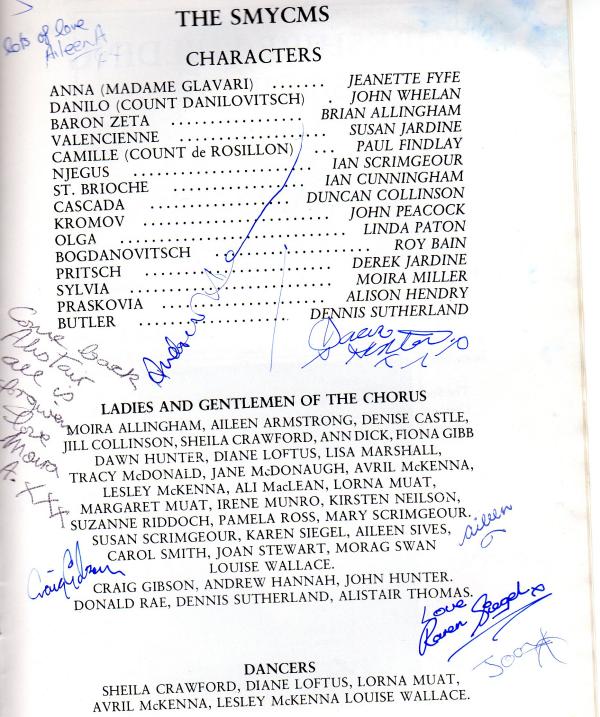 THE SMYCMS
lots of love
Aileen A
CHARACTERS
ANNA (MADAME GLAVARI) ....... JEANETTE FYFE
DANILO (COUNT DANILOVITSCH) . JOHN WHELAN
BARON ZETA ................ BRIAN ALLINGHAM
VALENCIENNE .................. SUSAN JARDINE
CAMILLE (COUNT de ROSILLON) ... PAUL FINDLAY
NJEGUS ..................... IAN SCRIMGEOUR
ST. BRIOCHE ................ IAN CUNNINGHAM
CASCADA .................. DUNCAN COLLINSON
KROMOV ...................... JOHN PEACOCK
OLGA ......................... LINDA PATON
BOGDANOVITSCH ................... ROY BAIN
PRITSCH ..................... DEREK JARDINE
SYLVIA ....................... MOIRA MILLER
PRASKOVIA .................. ALISON HENDRY
BUTLER .................. DENNIS SUTHERLAND
Andrew
Dawn
Hunter
Come back
Alistair
all is
forgiven
love
Moira
A. xxx
LADIES AND GENTLEMEN OF THE CHORUS
MOIRA ALLINGHAM, AILEEN ARMSTRONG, DENISE CASTLE,
JILL COLLINSON, SHEILA CRAWFORD, ANN DICK, FIONA GIBB
DAWN HUNTER, DIANE LOFTUS, LISA MARSHALL,
TRACY McDONALD, JANE McDONAUGH, AVRIL McKENNA,
LESLEY McKENNA, ALI MacLEAN, LORNA MUAT,
MARGARET MUAT, IRENE MUNRO, KIRSTEN NEILSON,
SUZANNE RIDDOCH, PAMELA ROSS, MARY SCRIMGEOUR.
SUSAN SCRIMGEOUR, KAREN SIEGEL, AILEEN SIVES,
CAROL SMITH, JOAN STEWART, MORAG SWAN
LOUISE WALLACE.
CRAIG GIBSON, ANDREW HANNAH, JOHN HUNTER.
DONALD RAE, DENNIS SUTHERLAND, ALISTAIR THOMAS.
aileen
Craig Gibson
Love
Karen Siegel x
Joan
DANCERS
SHEILA CRAWFORD, DIANE LOFTUS, LORNA MUAT,
AVRIL McKENNA, LESLEY McKENNA LOUISE WALLACE.